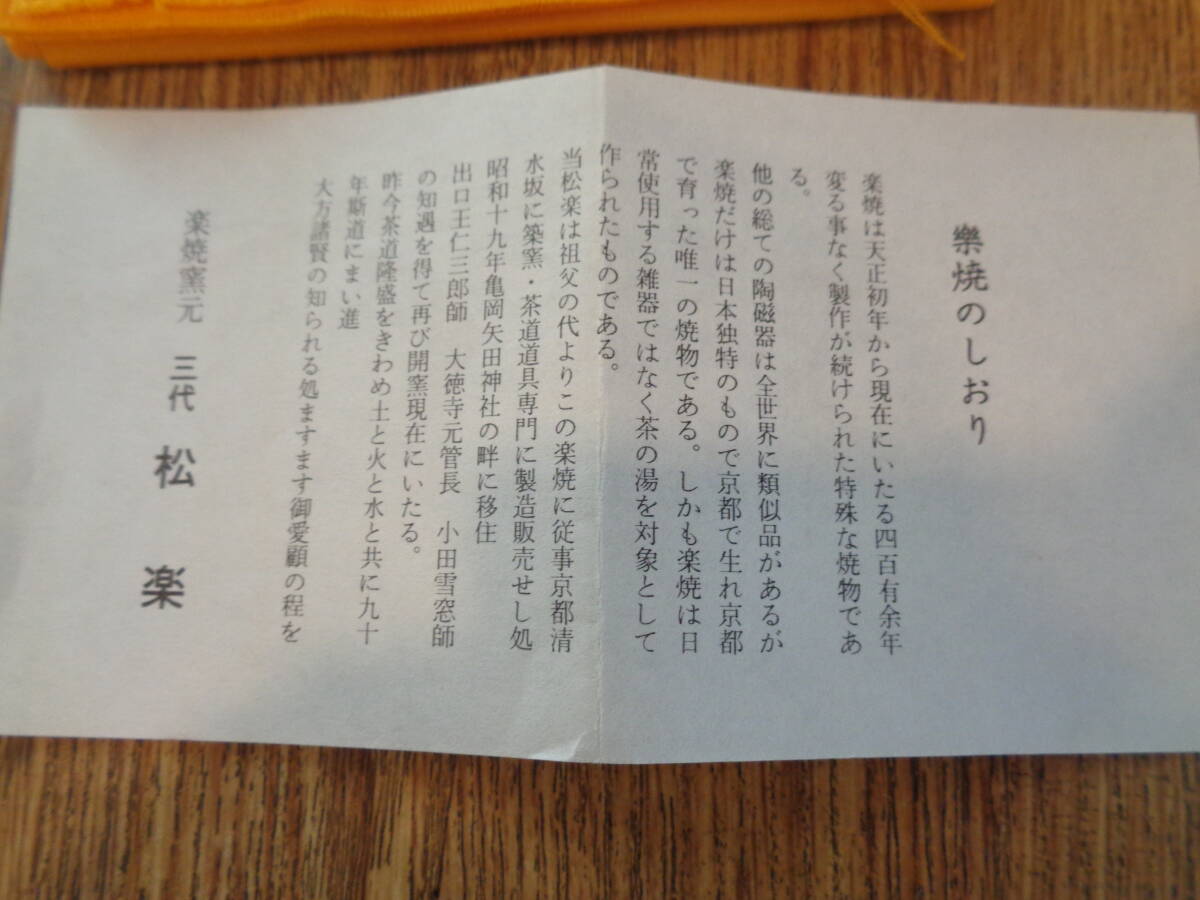 樂焼のしおり
楽焼は天正初年から現在にいたる四百有余年
変る事なく製作が続けられた特殊な焼物であ
る。
他の総ての陶磁器は全世界に類似品があるが
楽焼だけは日本独特のもので京都で生れ京都
で育った唯一の焼物である。しかも楽焼は日
常使用する雑器ではなく茶の湯を対象として
作られたものである。
当松楽は祖父の代よりこの楽焼に従事京都清
水坂に築窯・茶道道具専門に製造販売せし処
昭和十九年亀岡矢田神社の畔に移住
出口王仁三郎師　大徳寺元管長　小田雪窓師
の知遇を得て再び開窯現在にいたる。
昨今茶道隆盛をきわめ土と火と水と共に九十
年斯道にまい進
大方諸賢の知られる処ますます御愛顧の程を
楽焼窯元　三代　松　楽